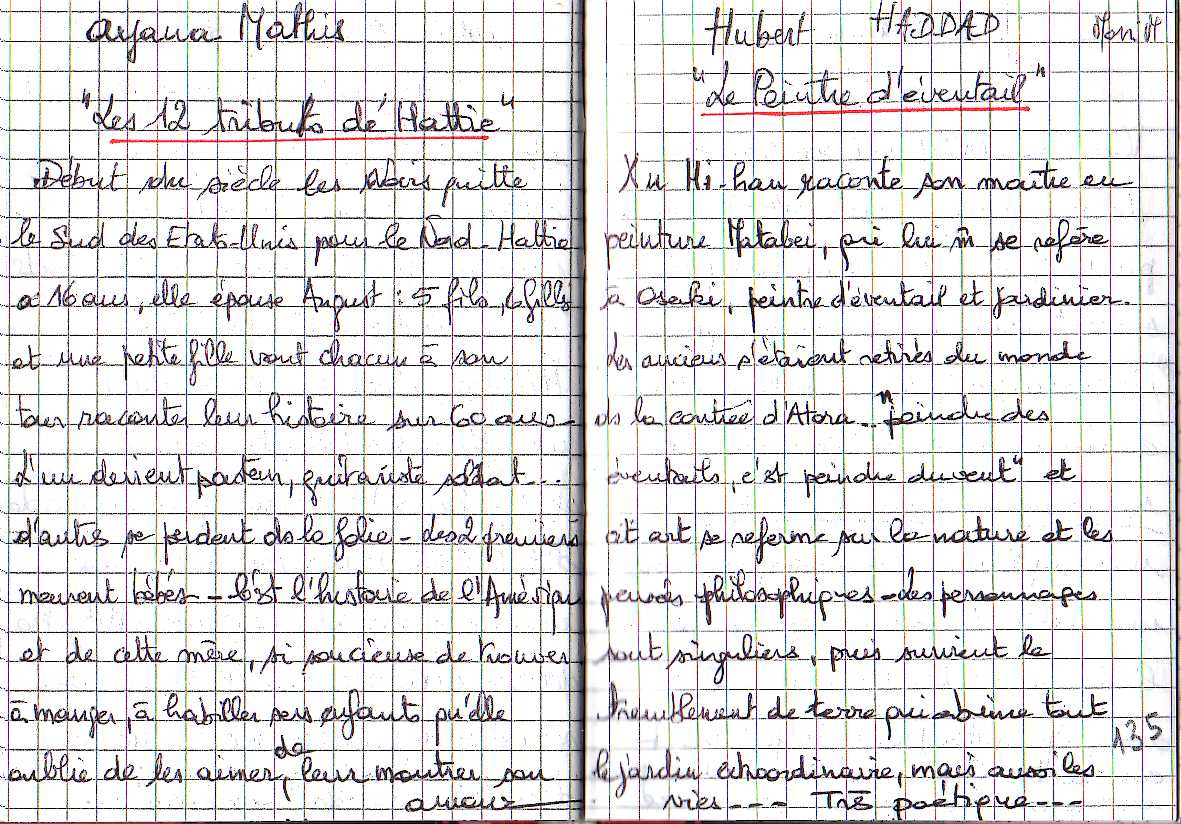 Ayana Mathis
"Les 12 tributs de Hattie"
Début du siècle les Noirs quitte
le Sud des Etats-Unis pour le Nord - Hattie
a 16 ans, elle épouse August : 5 fils, 6 filles
et une petite fille vont chacun à son
tour raconter leur histoire sur 60 ans -
L'un devient pasteur, guitariste soldat...
d'autres se perdent ds la folie - des 2 premiers
meurent bébés - C'est l'histoire de l'Amérique
et de cette mère, si soucieuse de trouver
à manger, à habiller ses enfants qu'elle
oublie de les aimer, de leur montrer son
amour
Hubert HADDAD
"Le Peintre d'éventail"
Xu Hi-han raconte son maître en
peinture Matabei, qui lui m̄ se refère
à Osaki, peintre d'éventail et jardinier.
des anciens s'étaient retirés du monde
ds la contrée d'Atora.. "peindre des
éventails, c'est peindre du vent" et
cet art se referme sur la nature et les
pensées philosophiques - des personnages
sont singuliers, puis survient le
tremblement de terre qui abîme tout
le jardin extraordinaire, mais aussi les
vies --- Très poétique ---
135